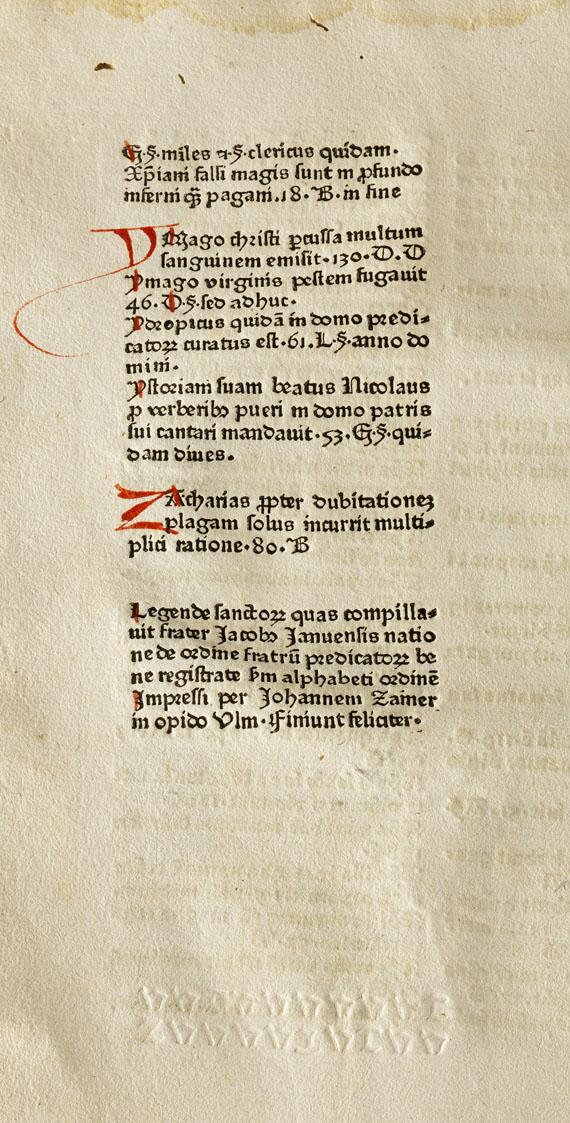 G·§·miles ⁊·§·clericus quidam·
Xp̄iani falsi magis sunt in ꝓfundo
inferni q̄ꝫ pagani.18·B·in fine
YMago christi ꝑcussa multum
sanguinem emisit·130·D·D
Ymago virginis pestem fugauit
46·D·§·sed adhuc·
Ydropicus quidā in domo predi⸗
catoꝝ curatus est·61·L·§·anno do
mini·
Ystoriam suam beatus Nicolaus
ꝓ verberibꝰ pueri in domo patris
sui cantari mandauit·53·G·§·qui⸗
dam diues·
ZAcharias ꝓpter dubitationeꝫ
plagam solus incurrit multi⸗
plici ratione·80·B
Legende sanctoꝝ quas compilla⸗
uit frater Jacobꝰ Januensis natio
ne de ordine fratrū predicatoꝝ be
ne registrate ẜm alphabeti ordinē
Impressi per Johannem Zainer
in opido Vlm·Finiunt feliciter·